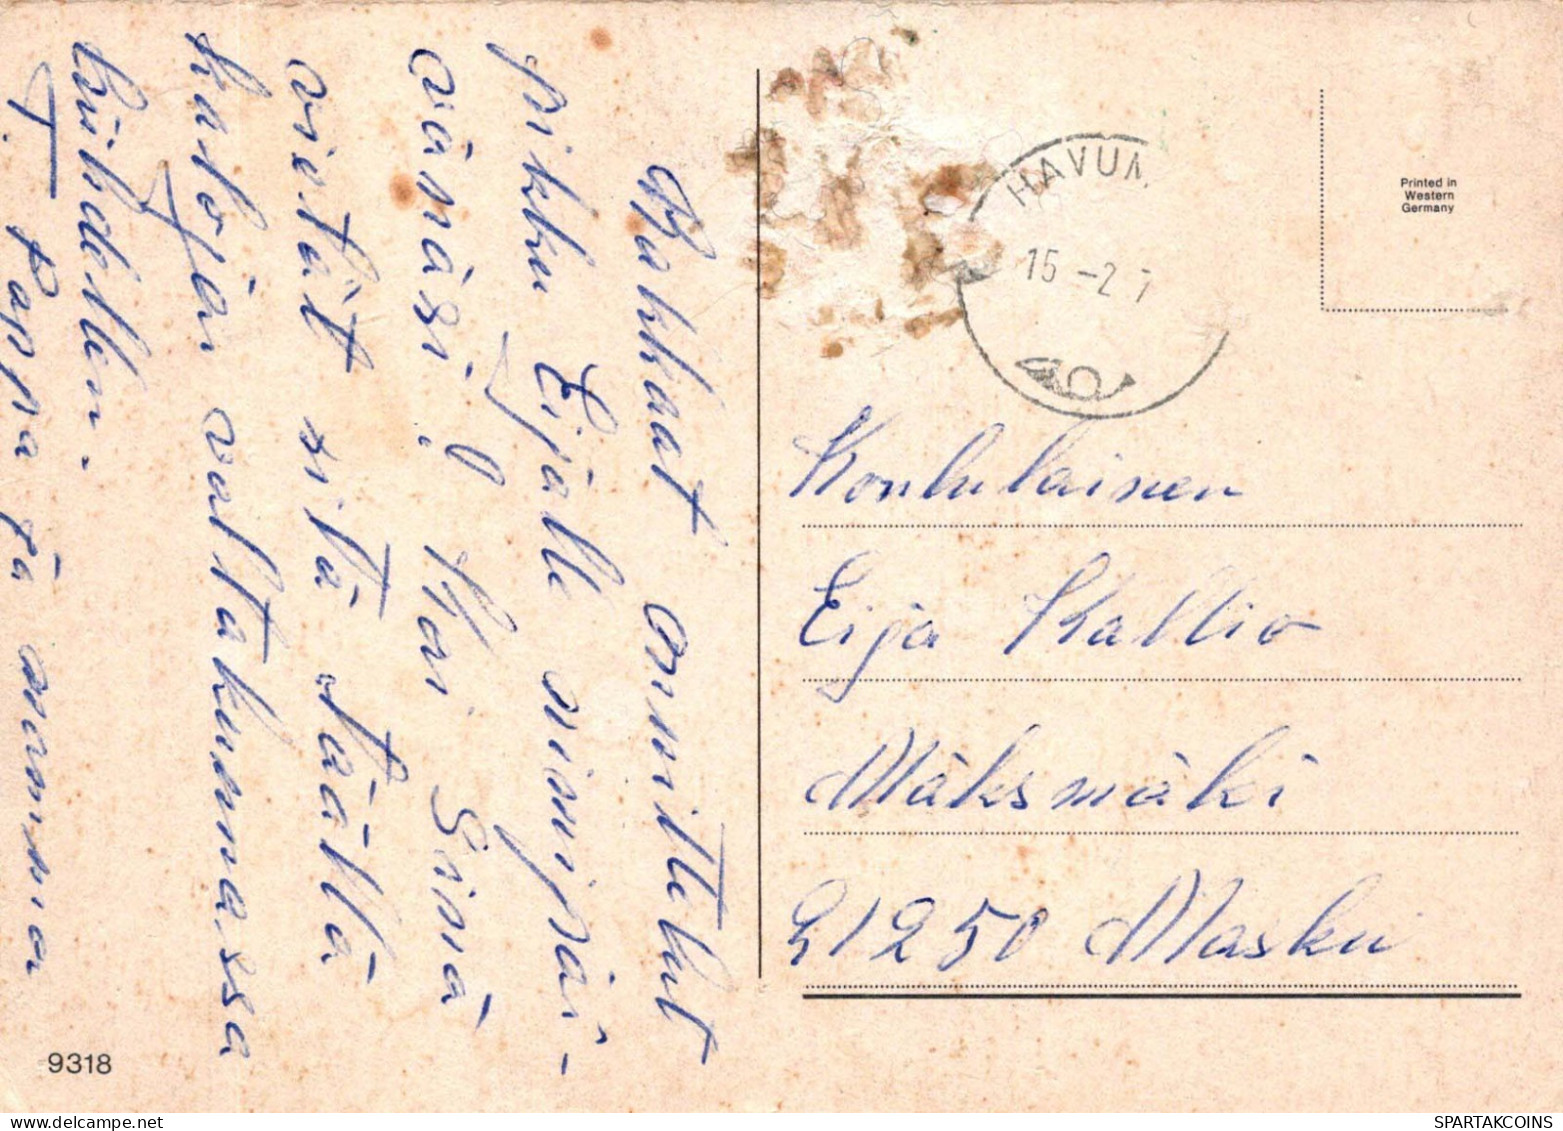 Rakkaat onnittelut
pikku Eijalle nimipäi-
vänäsi! Kai Sinä
vietät sitä täällä
kalojen valtakunnassa
T. Pappa ja mamma
HAVUM
15 -2 7
Printed in
Western
Germany
Koululainen
Eija Kallio
Mäksmäki
21250 Masku
9318
SPARTAKCOINS